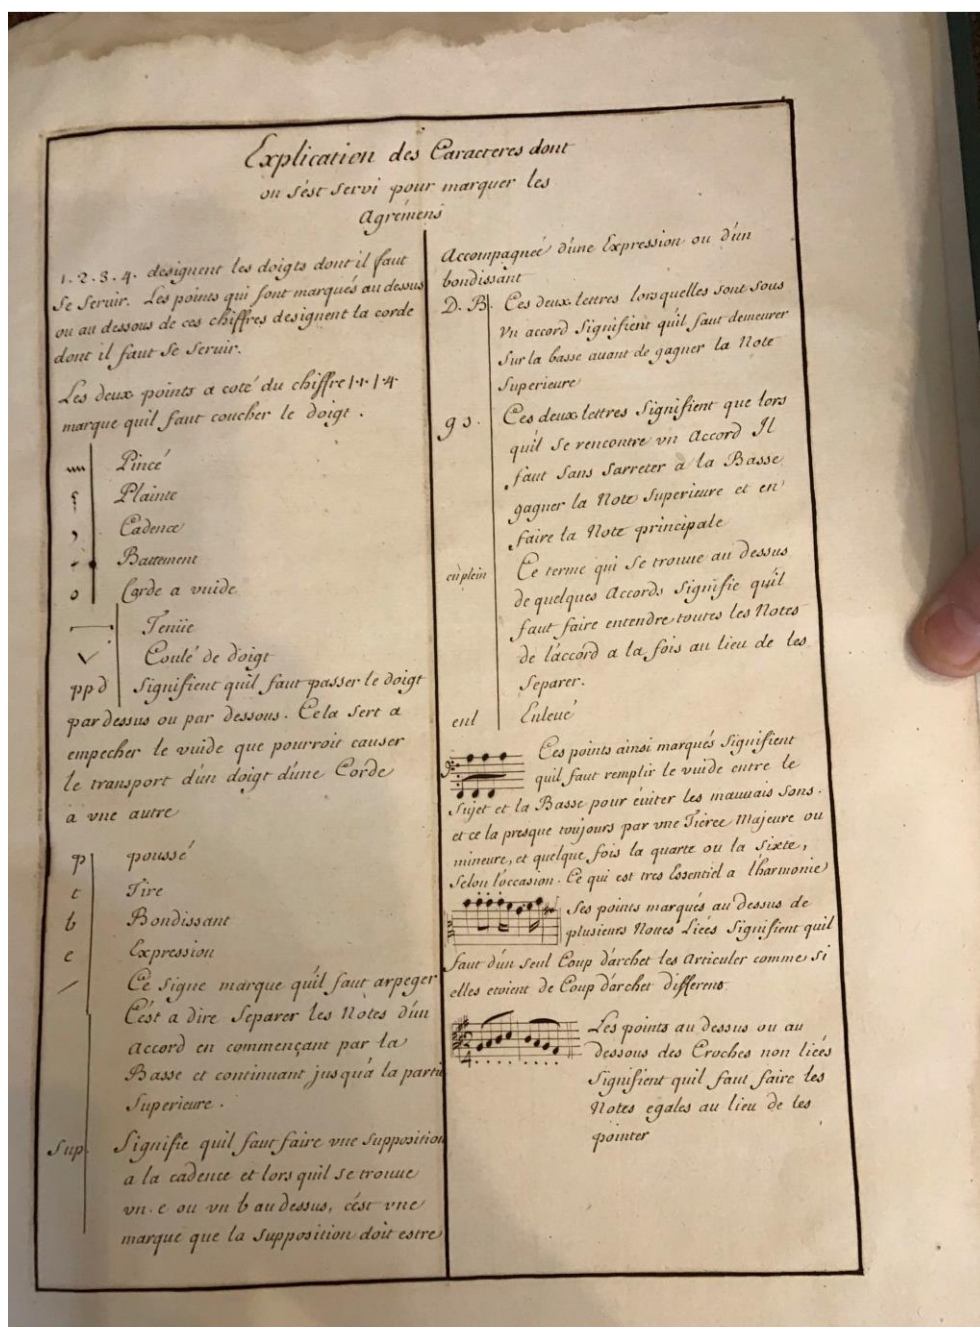 Explication des Caracteres dont
on s'est servi pour marquer les
Agrémens
1. 2. 3. 4. designent les doigts dont il faut
se seruir. Les points qui sont marqués au dessus
ou au dessous de ces chiffres designent la corde
dont il faut se seruir.
Les deux points a coté du chiffre
marque quil faut coucher le doigt.
Pincé
Plainte
Cadence
Battement
o Corde a vuide
Tenüe
Coulé de doigt
ppd Signifient quil faut passer le doigt
par dessus ou par dessous. Cela sert a
empecher le vuide que pourroit causer
le transport d'un doigt d'une Corde
à vne autre
p poussé
t Tire
b Bondissant
e Expression
Ce Signe marque qu'il faut arpeger
C'est a dire Separer les Notes d'un
Accord en commençant par la
Basse et continuant jusqu'á la partie
Superieure.
Sup. Signifie quil faut faire vne Supposition
a la cadence et lors quil se trouue
vn. e ou vn b au dessus, c'ést vne
marque que la Supposition doit estre
Accompagneé d'une Expression ou d'un
bondissant
D. B. Ces deux lettres lorsquelles sont sous
vn accord Signifient qu'il faut demeurer
Sur la basse auant de gagner la Note
Superieure
g s. Ces deux lettres Signifient que lors
qu'il se rencontre vn Accord Il
faut sans sarreter a la Basse
gagner la Note Superieure et en
faire la Note principale
en plein Ce terme qui se trouue au dessus
de quelques Accords Signifie qu'il
faut faire entendre toutes les Notes
de l'accord a la fois au lieu de les
Separer.
enl Enleué
Ces points ainsi marqués Signifient
quil faut remplir le vuide entre le
Sujet et la Basse pour éuiter les mauuais Sons.
et ce la presque toujours par vne Tierce Majeure ou
mineure, et quelque fois la quarte ou la Sixte,
Selon l'occasion. Ce qui est tres Essentiel a l'harmonie
Ses points marqués au dessus de
plusieurs Nottes Liées Signifient quil
faut d'un Seul Coup d'archet les Articuler comme si
elles etoient de Coup d'archet differens
Les points au dessus ou au
dessous des Croches non liées
Signifient quil faut faire les
Notes egales au lieu de les
pointer